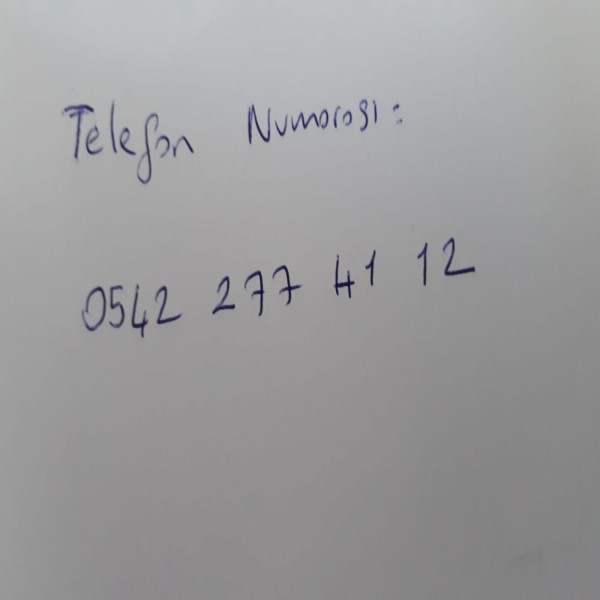 Telefon Numarası:
0542 277 41 12